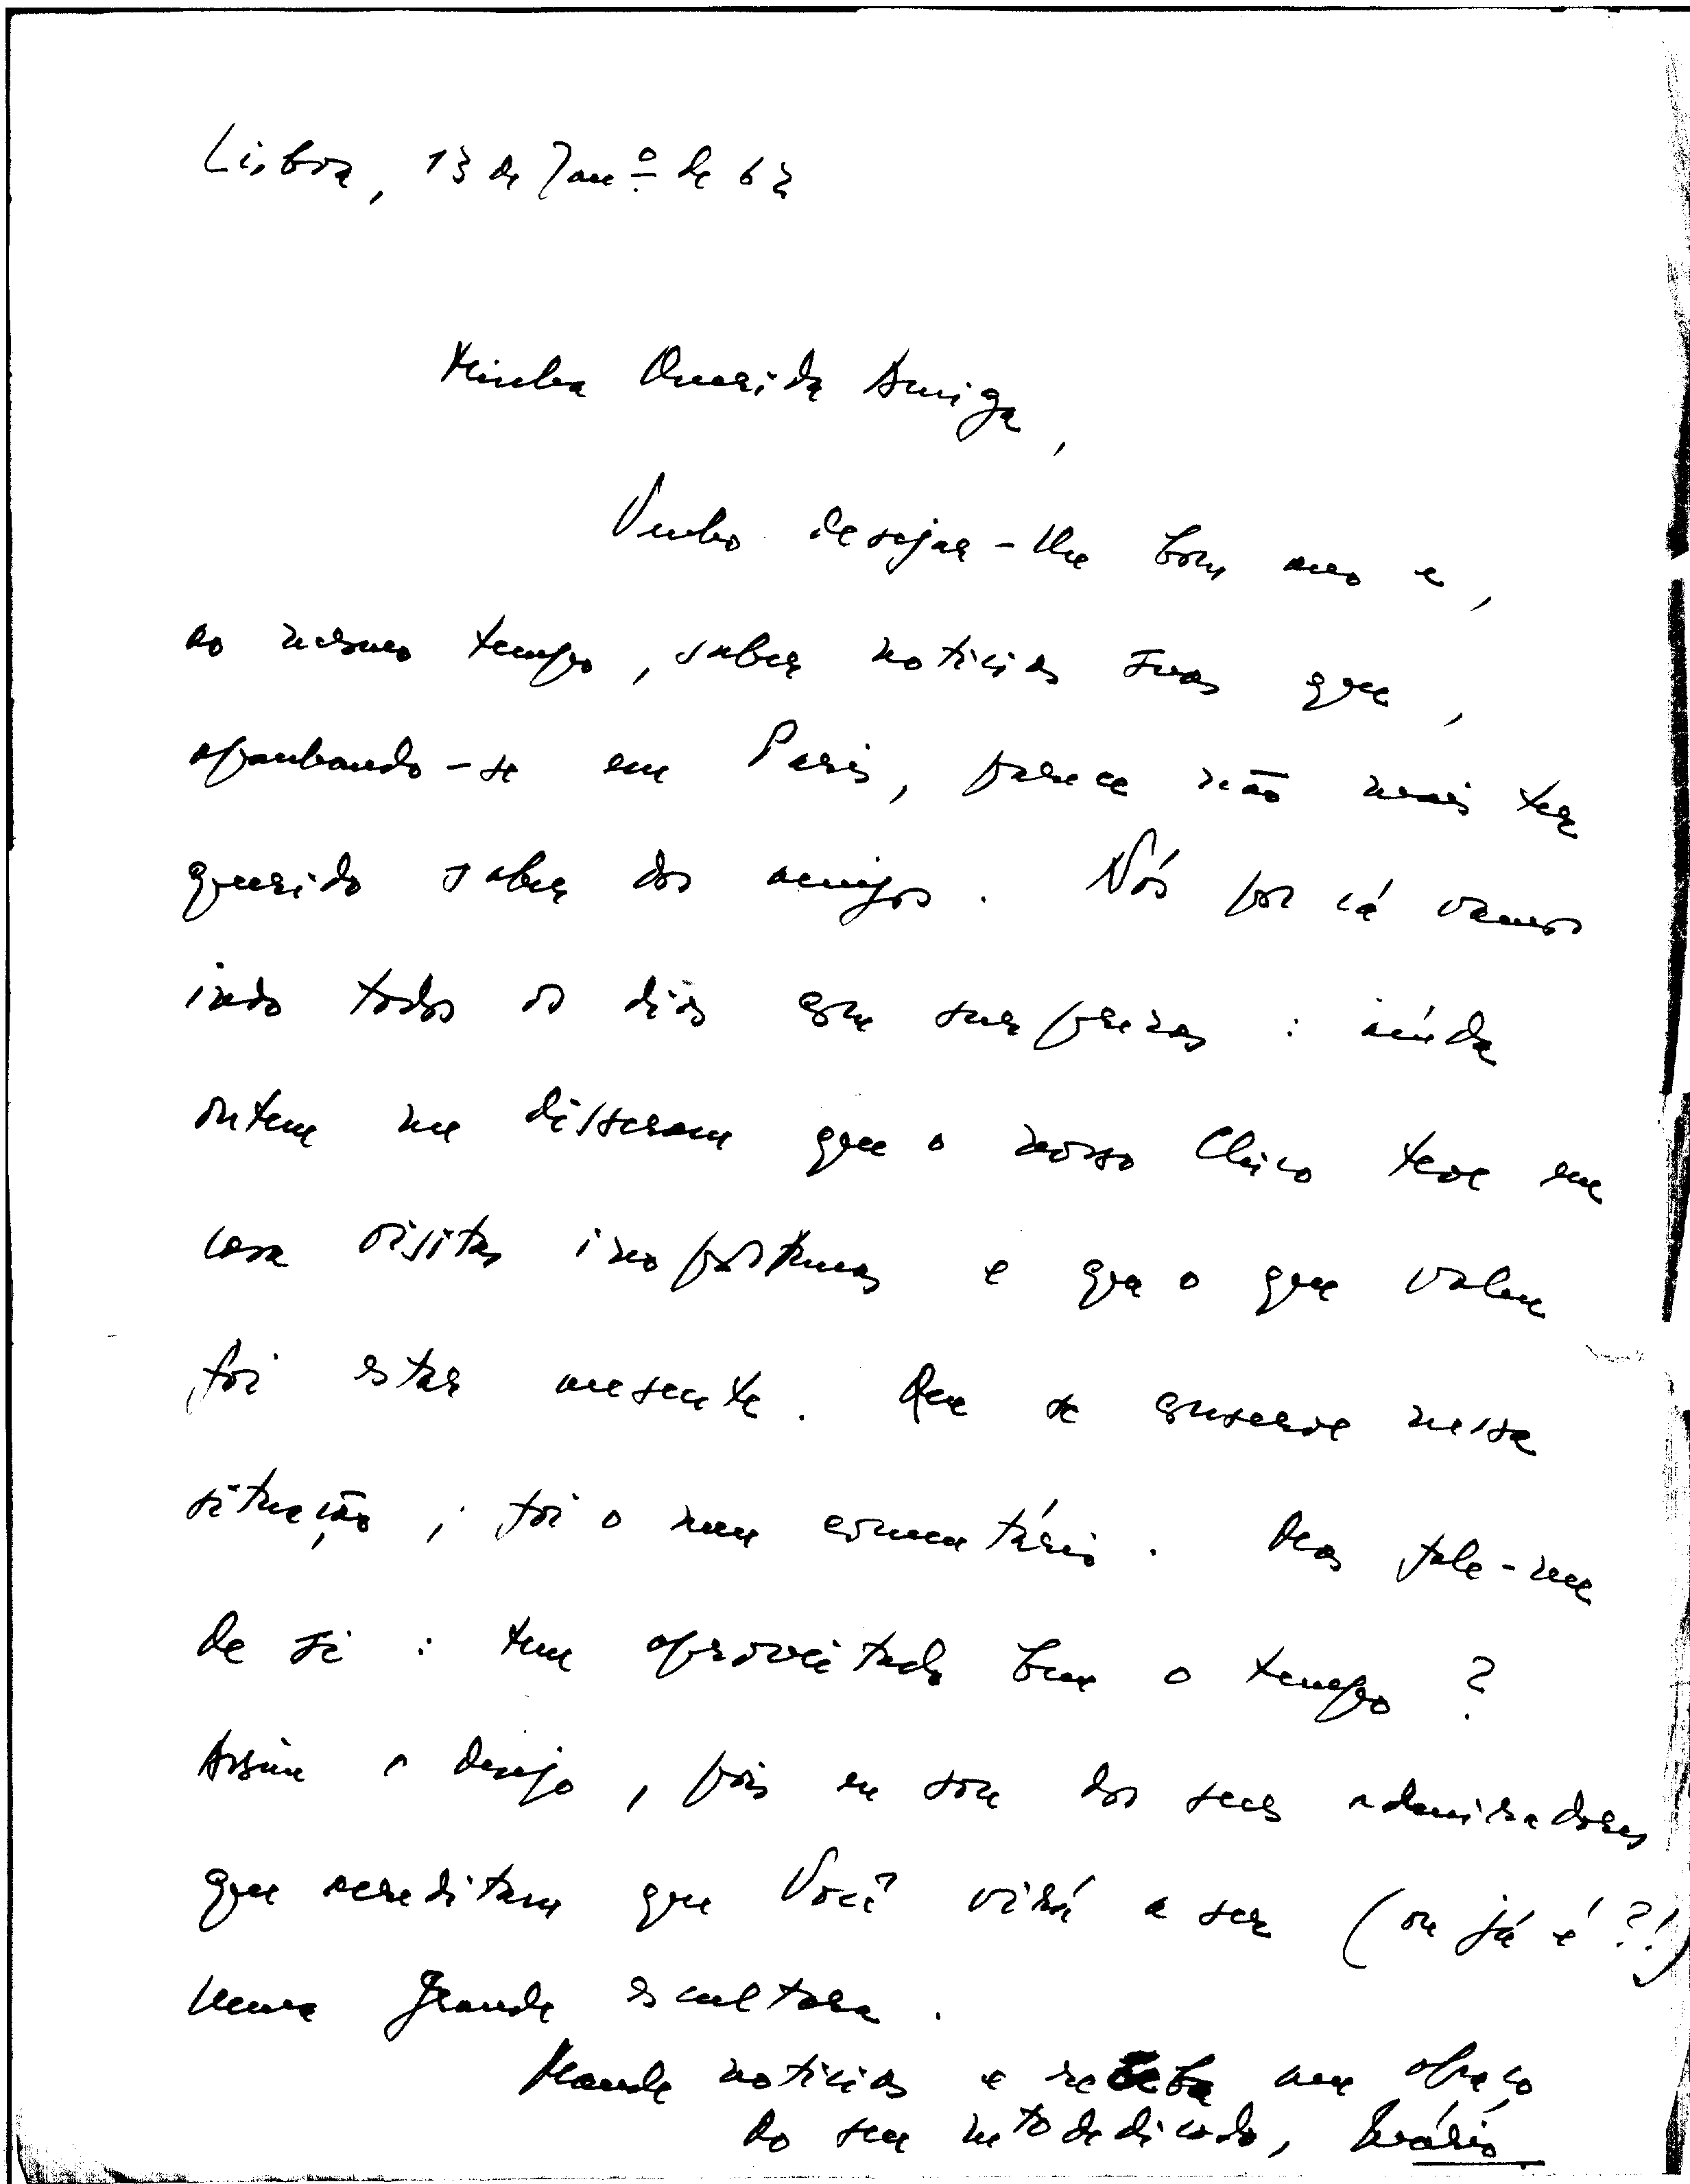 Lisboa, 13 de Janº de 62
Minha Querida Amiga,
Venho desejar-lhe bom ano e,
ao mesmo tempo, saber noticias suas que,
apanhando-se em Paris, parece não mais ter
querido saber dos amigos. Nós por cá vamos
indo todos os dias com surprezas: ainda
ontem me disseram que o nosso Chico teve em
casa visitas inoportunas e que o que valeu
foi estar ausente. Que se conserve nessa
situação, foi o meu comentário. Mas fale-me
de si: tem aproveitado bem o tempo?
Assim o desejo, pois eu sou dos seus admiradores
que acreditam que Você virá a ser (ou já é?!)
uma grande escultora.
Mande noticias e receba um abraço
do seu mto dedicado, Mário